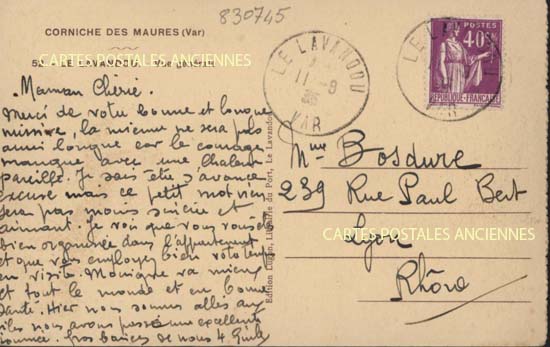 830745
CORNICHE DES MAURES (Var)
CARTES POSTALES ANCIENNES
52 - LE LAVANDOU - Vue générale
Maman Chérie.
Merci de votre bonne et longue
missive. la mienne ne sera pas
aussi longue car le courage
manque avec une chaleur
pareille. Je sais être d'avance
excusé mais ce petit mot n'en
sera pas moins sincère et
aimant. Je vois que vous vous êtes
bien organisée dans l'appartement
et que vous employez bien votre temps
en visite. Monique va mieux
et tout le monde est en bonne
santé. Hier nous sommes allés aux
îles nous avons passé une excellente
journée. Gros baisers de nous 4
Edition Lugan, Librairie du Port, Le Lavandou
LE LAVANDOU
11-9
VAR
POSTES
40c
REPUBLIQUE-FRANÇAISE
LE LAVANDOU
VAR
Mme Bosdure
239 Rue Paul Bert
CARTES POSTALES ANCIENNES
Lyon
Rhône